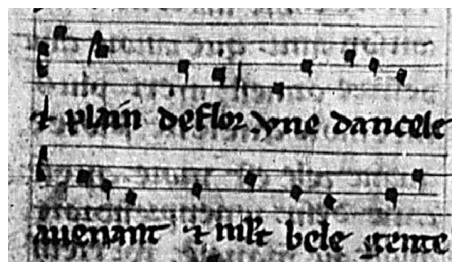 ⁊ plain de flor. vne dancele
auenant ⁊ mlt bele gente